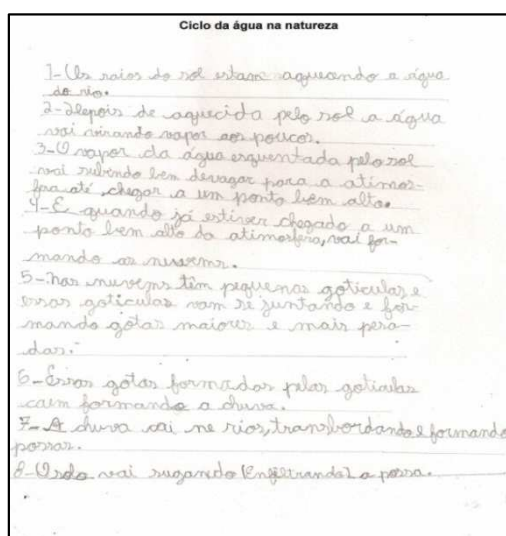 Ciclo da água na natureza
1-Os raios do sol estam aquecendo a água
do rio.
2-Depois de aquecida pelo sol a água
vai virando vapor aos poucos.
3-O vapor da água esquentada pelo sol
vai subindo bem devagar para a atimos-
fera até chegar a um ponto bem alto.
4-E quando já estiver chegado a um
ponto bem alto da atimosfera, vai for-
mando as nuvems.
5-nas nuvems têm pequenas goticulas e
essas goticulas vam se juntando e for-
mando gotas maiores e mais pesa-
das.
6-Essas gotas formadas pelas goticulas
caem formando a chuva.
7-A chuva cai ne rios, transbordando e formando
possas.
8-O solo vai sugando (enfiltrando) a possa.